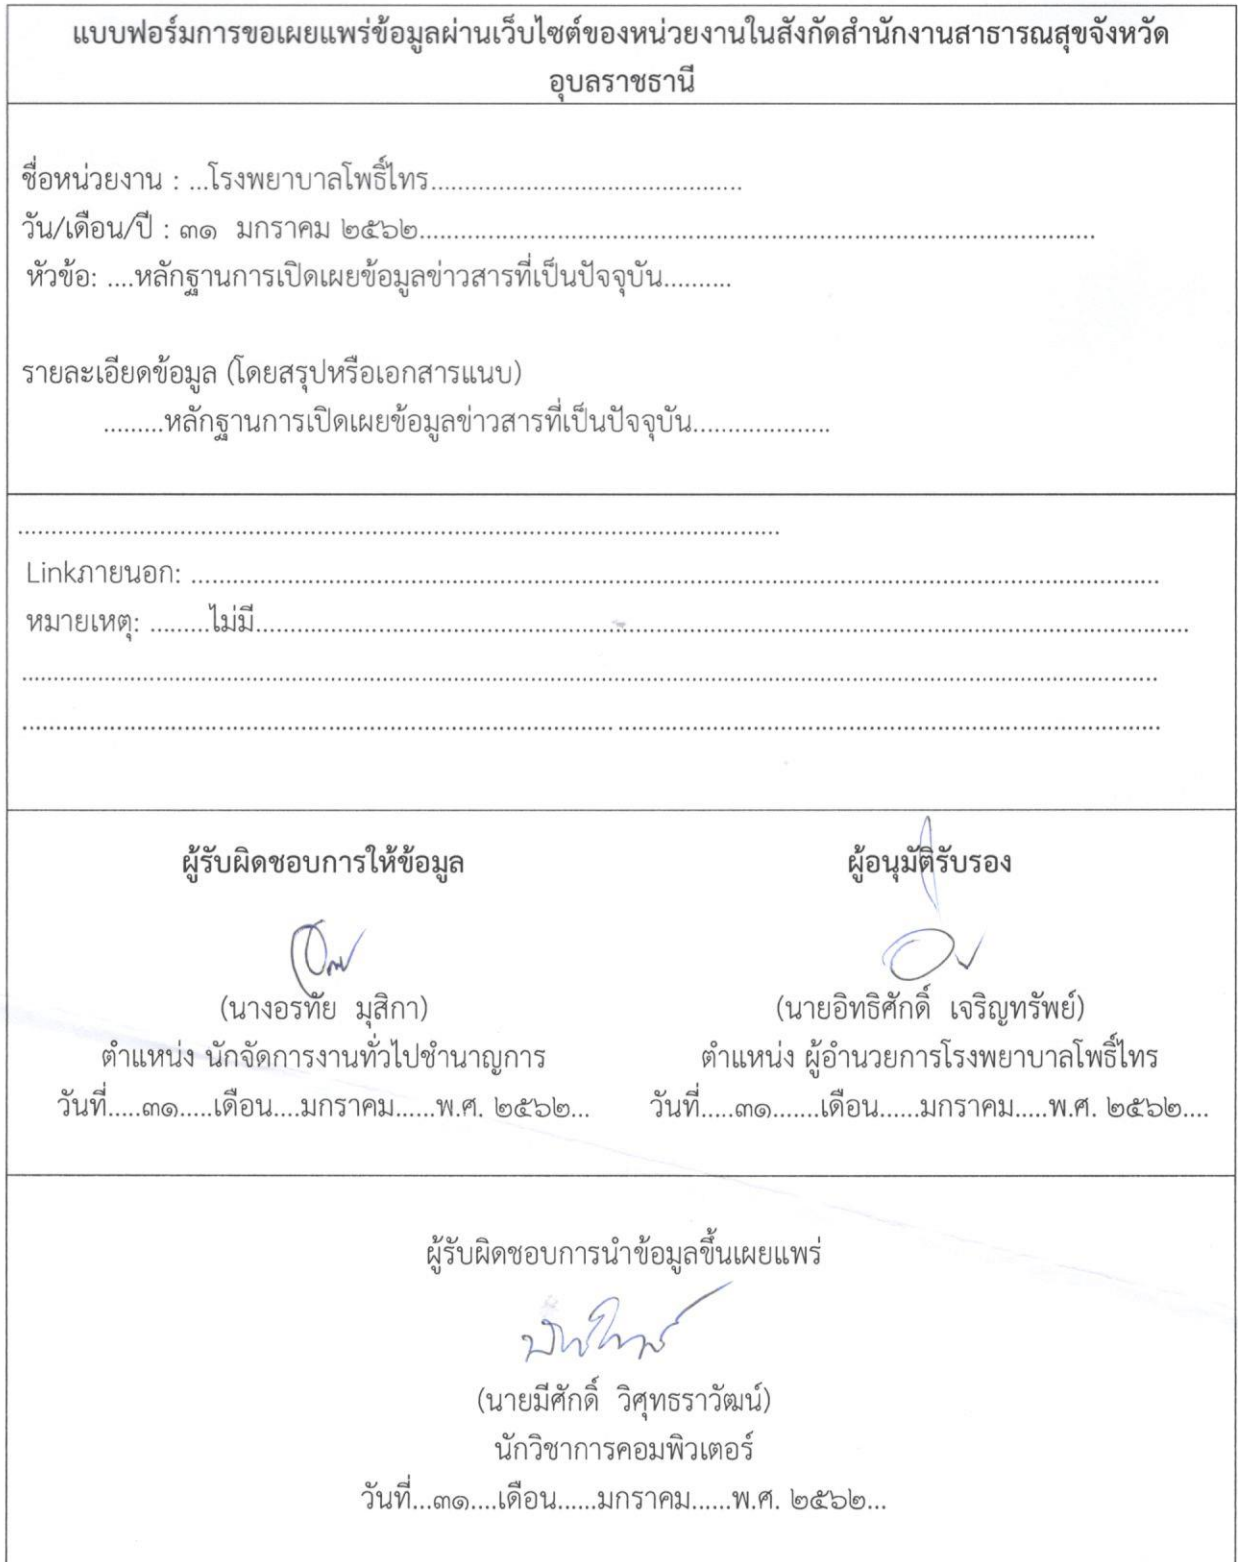 แบบฟอร์มการขอเผยแพร่ข้อมูลผ่านเว็บไซต์ของหน่วยงานในสังกัดสำนักงานสาธารณสุขจังหวัด
อุบลราชธานี
ชื่อหน่วยงาน : ...โรงพยาบาลโพธิ์ไทร..............................................
วัน/เดือน/ปี : ๓๑ มกราคม ๒๕๖๒....................................................................................................
หัวข้อ: ....หลักฐานการเปิดเผยข้อมูลข่าวสารที่เป็นปัจจุบัน..........
รายละเอียดข้อมูล (โดยสรุปหรือเอกสารแนบ)
.........หลักฐานการเปิดเผยข้อมูลข่าวสารที่เป็นปัจจุบัน....................
Linkภายนอก: ................................................................................................................................................
หมายเหตุ: .........ไม่มี..........................................................................................................................................
ผู้รับผิดชอบการให้ข้อมูล ผู้อนุมัติรับรอง
(นางอรทัย มุสิกา) (นายอิทธิศักดิ์ เจริญทรัพย์)
ตำแหน่ง นักจัดการงานทั่วไปชำนาญการ ตำแหน่ง ผู้อำนวยการโรงพยาบาลโพธิ์ไทร
วันที่.....๓๑.....เดือน....มกราคม......พ.ศ. ๒๕๖๒... วันที่.....๓๑.......เดือน......มกราคม.....พ.ศ. ๒๕๖๒....
ผู้รับผิดชอบการนำข้อมูลขึ้นเผยแพร่
(นายมีศักดิ์ วิศุทธราวัฒน์)
นักวิชาการคอมพิวเตอร์
วันที่...๓๑....เดือน......มกราคม......พ.ศ. ๒๕๖๒...